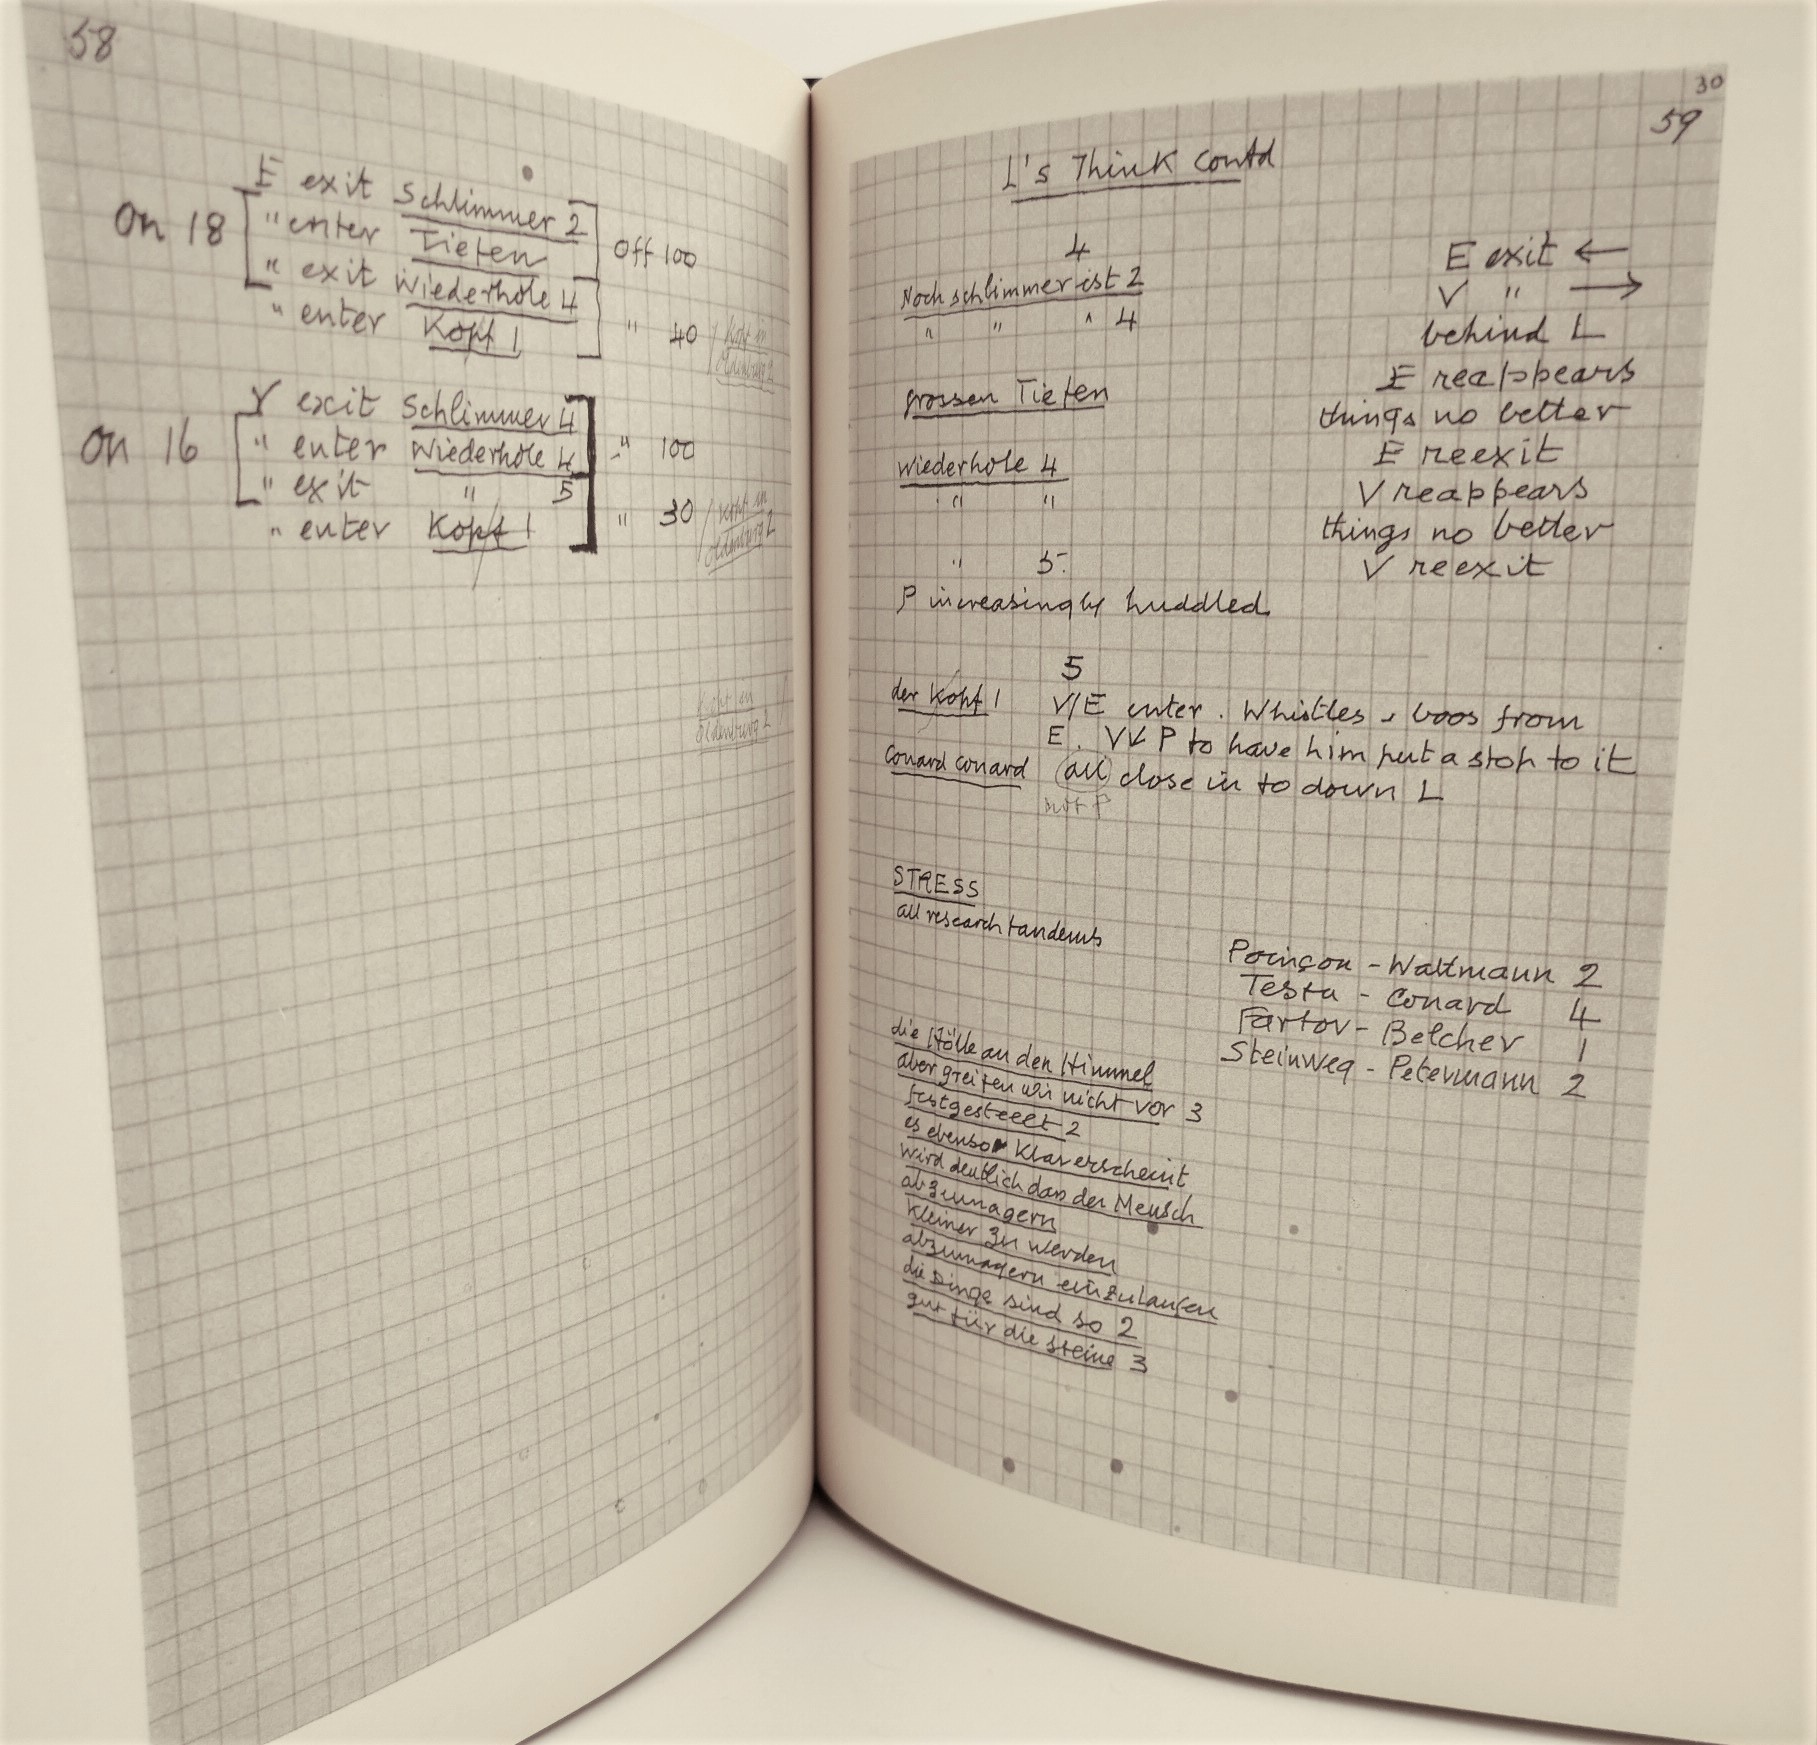 58
E exit Schlimmer 2
On 18 " enter Tiefen Off 100
" exit Wiederhole 4
" enter Kopf 1 " 40
Kopf in
Oldenburg 2
V exit Schlimmer 4
On 16 " enter Wiederhole 4 " 100
" exit " 5
" enter Kopf 1 " 30
Kopf in
Oldenburg 2
Oldenburg 2
30
59
L's Think contd
4
Noch schlimmer ist 2
" " " 4
grossen Tiefen
Wiederhole 4
" "
" 5.
P increasingly huddled
E exit ←
V " →
behind L
E reappears
things no better
E reexit
V reappears
things no better
V reexit
5
der Kopf 1 V/E enter. Whistles & boos from
E. V↓ P to have him put a stop to it
Conard Conard all close in to down L
not P
STRESS
all research tandems
Poinçon - Wattmann 2
Testu - Conard 4
Fartov - Belcher 1
Steinweg - Petermann 2
die Hölle an den Himmel
aber greifen wir nicht vor 3
festgestellt 2
es ebenso klar erscheint
wird deutlich dass der Mensch
abzumagern
kleiner zu werden
abzumagern einzulaufen
die Dinge sind so 2
gut für die Steine 3